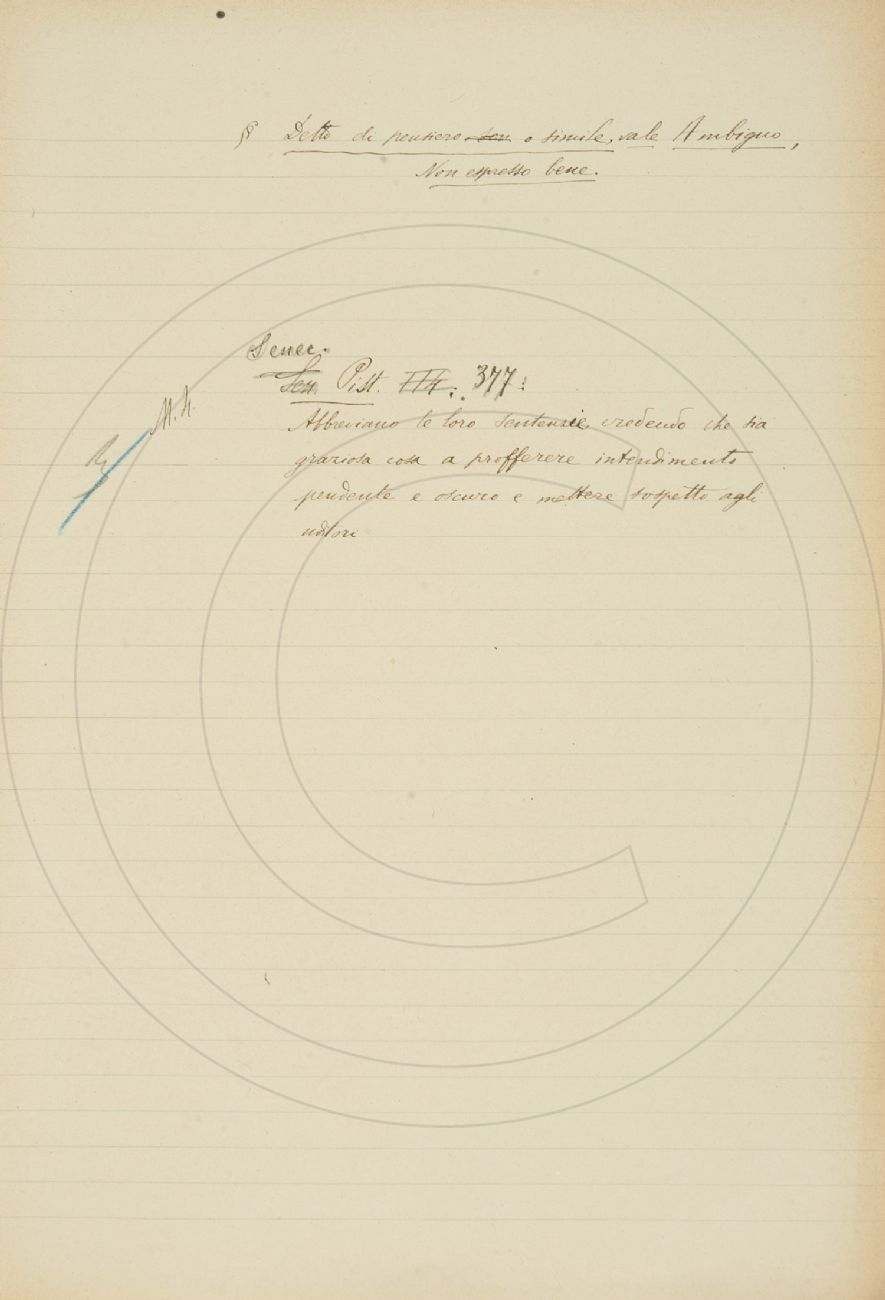 § Detto di pensiero sen o simile, vale Ambiguo,
Non espresso bene.
Senec.
Sen Pist. 377:
M. N.
Abbreviano le loro sentenzie, credendo che sia
graziosa cosa a profferere intendimento
pendente e oscuro e mettere sospetto agli
uditori